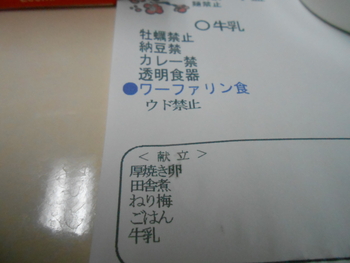 ○牛乳
牡蠣禁止
納豆禁
カレー禁
透明食器
●ワーファリン食
ウド禁止
＜献立＞
厚焼き卵
田舎煮
ねり梅
ごはん
牛乳